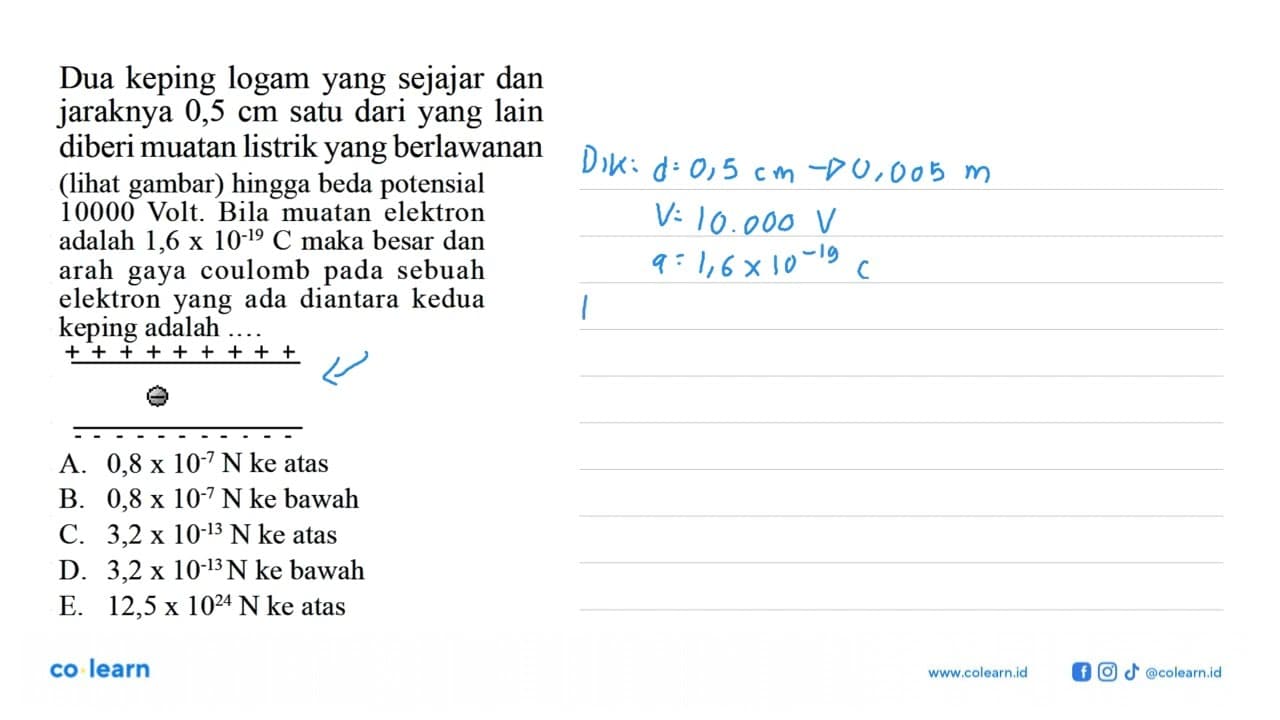 Dua keping logam yang sejajar dan
jaraknya 0,5 cm satu dari yang lain
diberi muatan listrik yang berlawanan
(lihat gambar) hingga beda potensial
10000 Volt. Bila muatan elektron
adalah 1,6 x 10⁻¹⁹ C maka besar dan
arah gaya coulomb pada sebuah
elektron yang ada diantara kedua
keping adalah ....
+ + + + + + + + +
-
- - - - - - - - - - -
A. 0,8 x 10⁻⁷ N ke atas
B. 0,8 x 10⁻⁷ N ke bawah
C. 3,2 x 10⁻¹³ N ke atas
D. 3,2 x 10⁻¹³ N ke bawah
E. 12,5 x 10²⁴ N ke atas
Dik: d = 0,5 cm → 0,005 m
V = 10.000 V
q = 1,6 x 10⁻¹⁹ C
co learn
www.colearn.id
@colearn.id